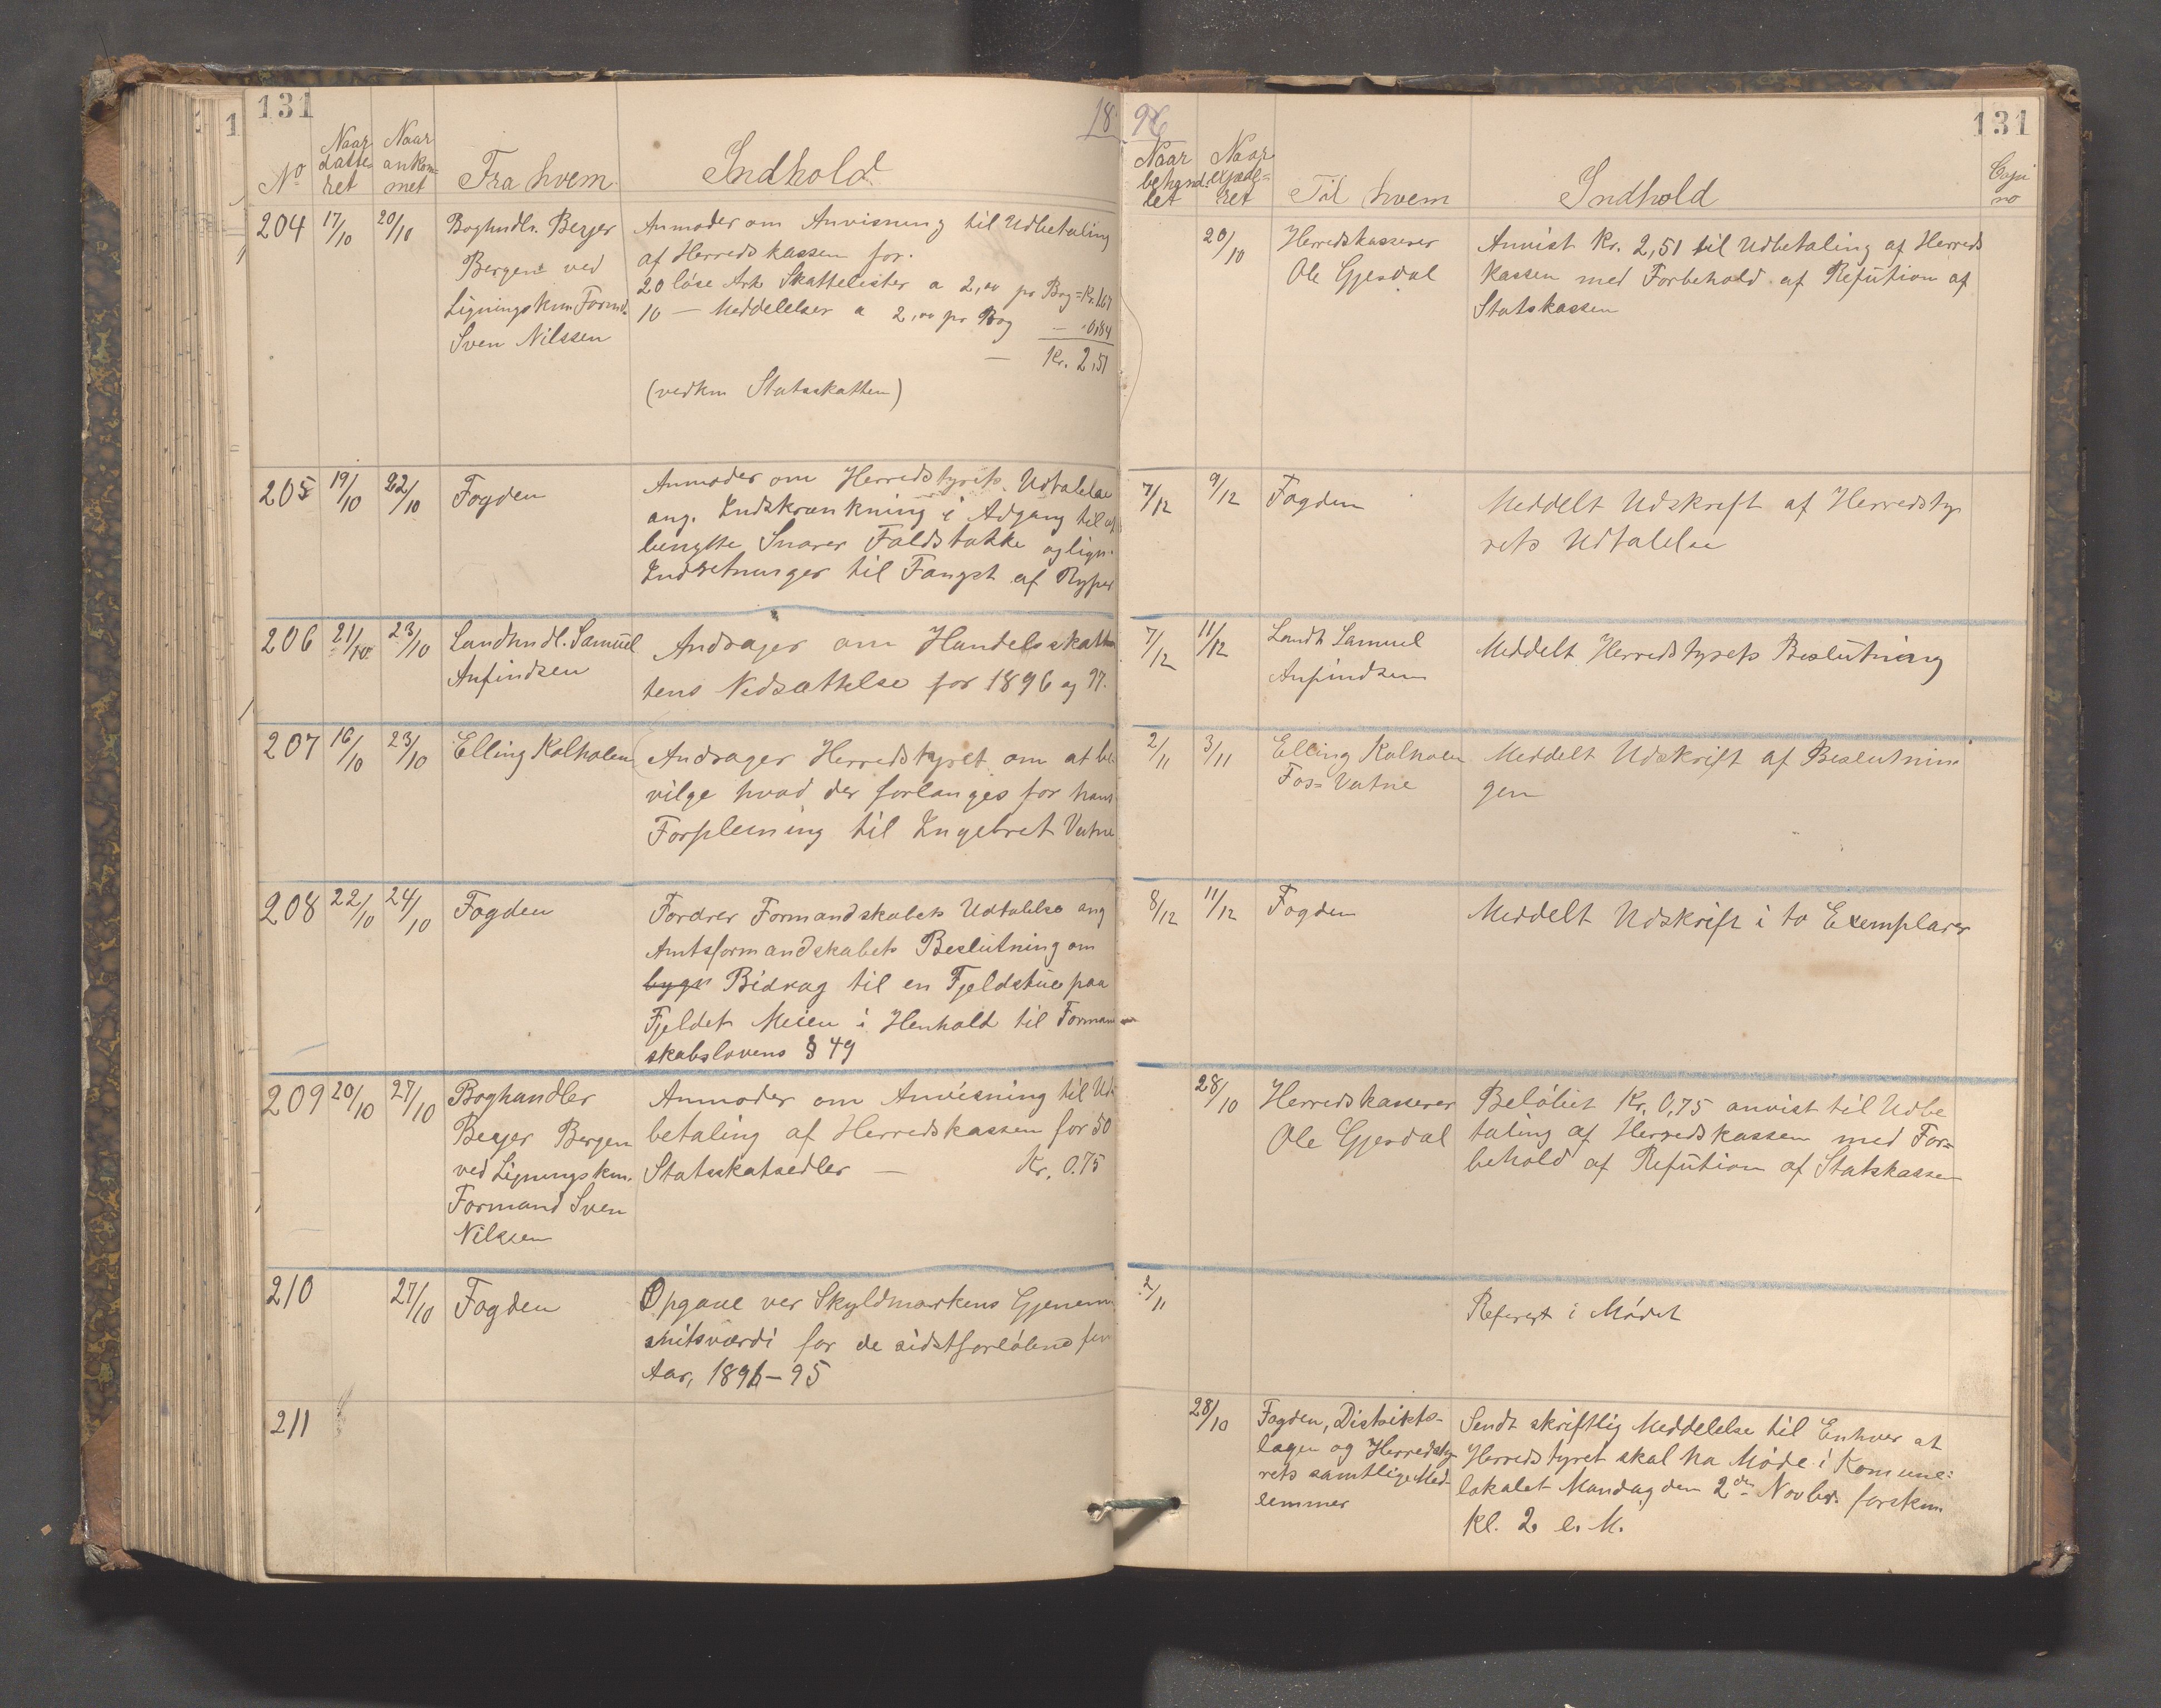 131
18
96
131
No
Naar datteret
Naar ankommet
Fra hvem
Indhold
Naar behandlet
Naar expederet
Til hvem
Indhold
Copi no
204
17/10
20/10
Boghndlr. Beyer
Bergen ved
Ligningskm. Formd.
Sven Nilssen
Anmoder om Anvisning til Udbetaling
af Herredskassen for.
20 löse Ark Skattelister a 2,00 pr Bog = Kr. 1,67
10 — Meddelelser a 2,00 pr Bog — 0,84
— Kr. 2,51
(vedkm Statsskatten)
20/10
Herredskasserer
Ole Gjesdal
Anvist Kr. 2,51 til Udbetaling af Herreds
kassen med Forbehold af Refution af
Statskassen
205
19/10
22/10
Fogden
Anmoder om Herredstyrets Udtalelse
ang. Indskrænkning i Adgang til at
benytte Snarer Faldstokke og lign.
Indretninger til Fangst af Ryper
7/12
9/12
Fogden
Meddelt Udskrift af Herredsty
rets Udtalelse
206
21/10
23/10
Landhndl. Samuel
Anfindsen
Andrager om Handelsskat
tens Nedsættelse for 1896 og 97.
7/12
11/12
Landh Samuel
Anfindsen
Meddelt Herredstyrets Beslutning
207
16/10
23/10
Elling Kolholen
Andrager Herredstyret om at be
vilge hvad der forlanges for hans
Forpleining til Engebret Vatne
2/11
3/11
Elling Kolholen
Fos=Vatne
Meddelt Udskrift af Beslutnin
gen
208
22/10
24/10
Fogden
Fordrer Formandskabets Udtalelse ang
Amtsformandskabets Beslutning om
bygn Bidrag til en Fjeldstue paa
Fjeldet Meien i Henhold til Forman
skabslovens § 49
8/12
11/12
Fogden
Meddelt Udskrift i to Exemplarer
209
20/10
27/10
Boghandler
Beyer Bergen
ved Ligningskm.
Formand Sven
Nilssen
Anmoder om Anvisning til Ud
betaling af Herredskassen for 50
Statsskatsedler — Kr. 0.75
28/10
Herredskasserer
Ole Gjesdal
Belöbet Kr. 0,75 anvist til Udbe
taling af Herredskassen med For=
behold af Refution af Statskassen
210
27/10
Fogden
Opgave ver Skyldmarkens Gjennem
snitsværdi for de sidstforløbne fem
Aar, 1891–95
2/11
Referert i Mödet
211
28/10
Fogden, Distrikts-
lægen og Herredsty
rets samtlige Med-
lemmer
Sendt skriftlig Meddelelse til Enhver at
Herredstyret skal ha Møde i Komune:
lokalet Mandag den 2den Novbr. förstkm.
Kl. 2 e. M.